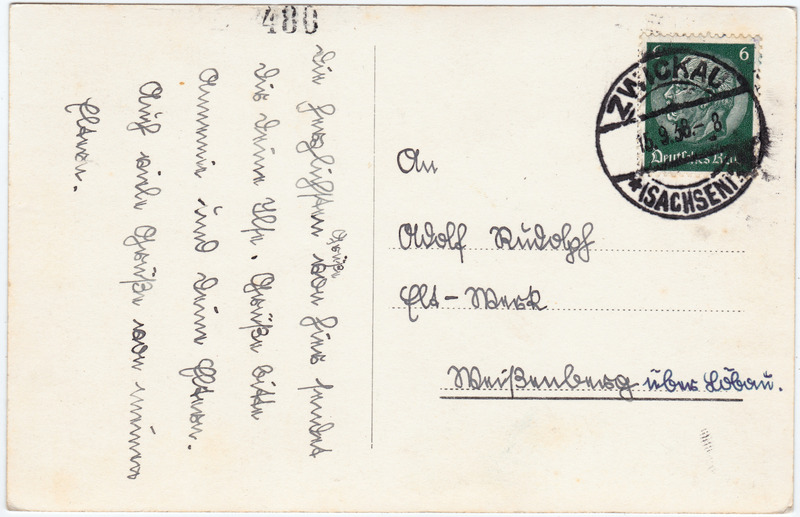 480
Die herzlichsten von hier sendet
Grüße
Dir Deine Ilse. Grüße bitte
Annemie und Deine Eltern.
Auch viele Grüße von meinen
Eltern.
6
Deutsches Reich
ZWICKAU
15.9.36.-8
(SACHSEN)
An
Adolf Rudolph
Elt-Werk
Weißenberg über Löbau.